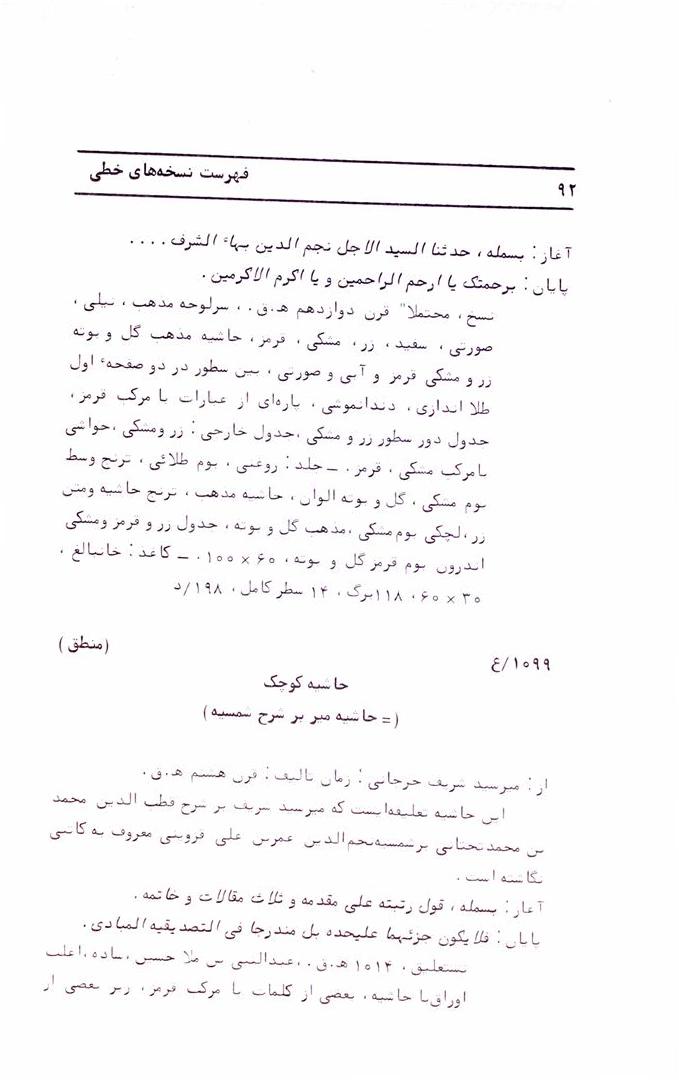 فهرست نسخه‌های خطی
۹۲
آغاز: بسمله، حدثنا السید الاجل نجم الدین بهاء الشرف ....
پایان: برحمتک یا ارحم الراحمین و یا اکرم الاکرمین.
نسخ، محتملا" قرن دوازدهم ه.ق.، سرلوحه مذهب، نیلی،
صورتی، سفید، زر، مشکی، قرمز، حاشیه مذهب گل و بوته
زر و مشکی قرمز و آبی و صورتی، بین سطور در دو صفحهٔ اول
طلا اندازی، دندانموشی، پاره‌ای از عبارات با مرکب قرمز،
جدول دور سطور زر و مشکی، جدول خارجی: زر ومشکی، حواشی
بامرکب مشکی، قرمز. ـ جلد: روغنی، بوم طلائی، ترنج وسط
بوم مشکی، گل و بوته الوان، حاشیه مذهب، ترنج حاشیه ومتن
زر، لچکی بوم مشکی، مذهب گل و بوته، جدول زر و قرمز ومشکی
اندرون بوم قرمز گل و بوته، ۶۰ × ۱۰۰. ـ کاغذ: خانبالغ،
۳۰ × ۶۰، ۱۱۸برگ، ۱۴ سطر کامل، ۱۹۸/د
۱۰۹۹/ع
(منطق)
حاشیه کوچک
(= حاشیه میر بر شرح شمسیه)
از: میرسید شریف جرجانی: زمان تالیف: قرن هشتم ه.ق.
این حاشیه تعلیقه‌ایست که میرسید شریف بر شرح قطب الدین محمد
بن محمدتحتانی برشمسیه‌نجم‌الدین عمربن علی قزوینی معروف به کاتبی
نگاشته است.
آغاز: بسمله، قول رتبته علی مقدمه و ثلاث مقالات و خاتمه.
پایان: فلا یکون جزئهما علیحده بل مندرجا فی التصدیقیه المبادی.
نستعلیق، ۱۰۱۴ ه.ق.، عبدالنبی بن ملا حسین، ساده، اغلب
اوراق‌با حاشیه، بعضی از کلمات با مرکب قرمز، زیر بعضی از